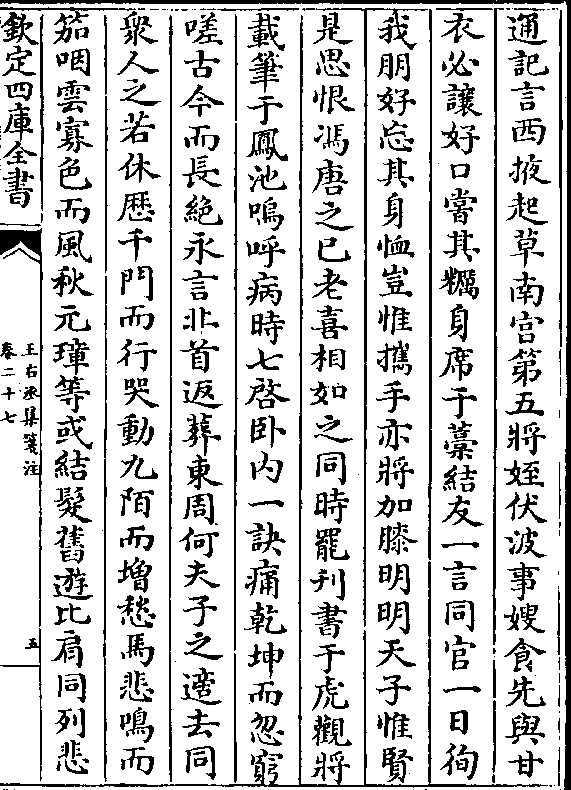 通記言西掖起草南宫第五將姪伏波事嫂食先與甘
衣必讓好口嘗其糲身席于藁結友一言同官一日徇
我朋好忘其身恤豈惟攜手亦將加膝明明天子惟賢
是思恨馮唐之已老喜相如之同時罷刊書于虎觀將
載筆于鳳池嗚呼病時七啓卧内一訣痛乾坤而忽窮
嗟古今而長絶永言北首返葬東周何夫子之適去同
衆人之若休歴千門而行哭動九陌而增愁馬悲鳴而
笳咽雲寡色而風秋元瑋等或結髮舊遊比肩同列悲
欽定四庫全書
王右丞集箋注
卷二十七
五